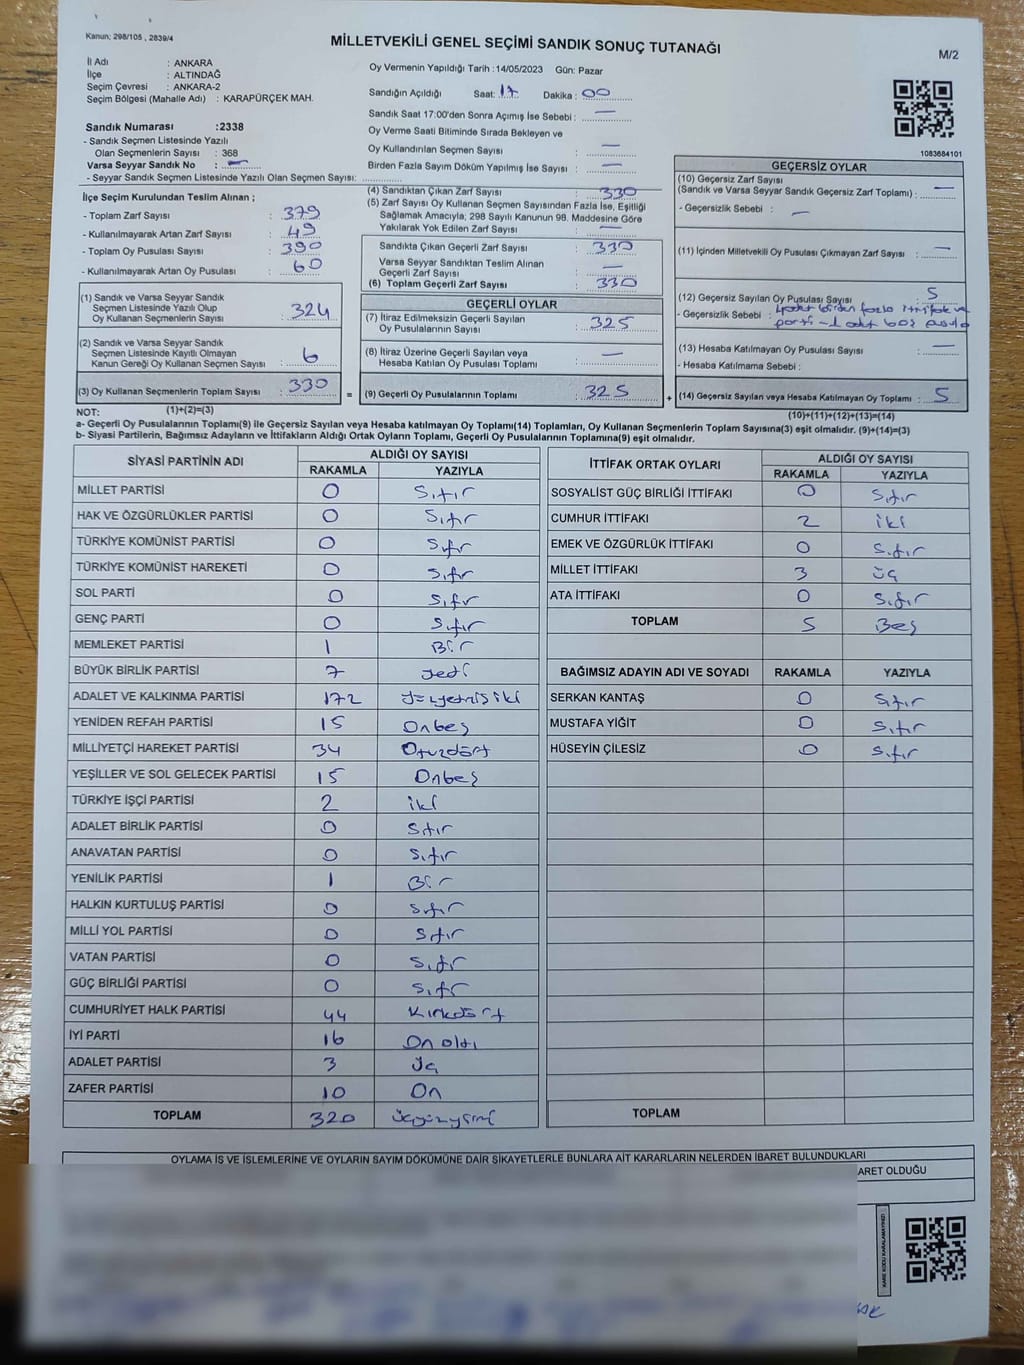 Kanun: 298/105 , 2839/4
MİLLETVEKİLİ GENEL SEÇİMİ SANDIK SONUÇ TUTANAĞI
M/2
İl Adı : ANKARA
İlçe : ALTINDAĞ
Seçim Çevresi : ANKARA-2
Seçim Bölgesi (Mahalle Adı) : KARAPÜRÇEK MAH.
Sandık Numarası :2338
- Sandık Seçmen Listesinde Yazılı
Olan Seçmenlerin Sayısı : 368
Varsa Seyyar Sandık No : —
- Seyyar Sandık Seçmen Listesinde Yazılı Olan Seçmen Sayısı:
Oy Vermenin Yapıldığı Tarih :14/05/2023 Gün: Pazar
Sandığın Açıldığı Saat: 17 Dakika : 00
Sandık Saat 17:00'den Sonra Açımış İse Sebebi : —
Oy Verme Saati Bitiminde Sırada Bekleyen ve
Oy Kullandırılan Seçmen Sayısı : —
Birden Fazla Sayım Döküm Yapılmış İse Sayısı : —
1083684101
İlçe Seçim Kurulundan Teslim Alınan ;
- Toplam Zarf Sayısı : 379
- Kullanılmayarak Artan Zarf Sayısı : 49
- Toplam Oy Pusulası Sayısı : 390
- Kullanılmayarak Artan Oy Pusulası : 60
(1) Sandık ve Varsa Seyyar Sandık
Seçmen Listesinde Yazılı Olup
Oy Kullanan Seçmenlerin Sayısı : 324
(2) Sandık ve Varsa Seyyar Sandık
Seçmen Listesinde Kayıtlı Olmayan
Kanun Gereği Oy Kullanan Seçmen Sayısı : 6
(3) Oy Kullanan Seçmenlerin Toplam Sayısı : 330
(1)+(2)=(3)
(4) Sandıktan Çıkan Zarf Sayısı : 330
(5) Zarf Sayısı Oy Kullanan Seçmen Sayısından Fazla İse, Eşitliği
Sağlamak Amacıyla, 298 Sayılı Kanunun 98. Maddesine Göre
Yakılarak Yok Edilen Zarf Sayısı : —
Sandıkta Çıkan Geçerli Zarf Sayısı : 330
Varsa Seyyar Sandıktan Teslim Alınan
Geçerli Zarf Sayısı : —
(6) Toplam Geçerli Zarf Sayısı : 330
GEÇERLİ OYLAR
(7) İtiraz Edilmeksizin Geçerli Sayılan
Oy Pusulalarının Sayısı : 325
(8) İtiraz Üzerine Geçerli Sayılan veya
Hesaba Katılan Oy Pusulası Toplamı : —
= (9) Geçerli Oy Pusulalarının Toplamı : 325
GEÇERSİZ OYLAR
(10) Geçersiz Zarf Sayısı
(Sandık ve Varsa Seyyar Sandık Geçersiz Zarf Toplamı) : —
- Geçersizlik Sebebi : —
(11) İçinden Milletvekili Oy Pusulası Çıkmayan Zarf Sayısı : —
(12) Geçersiz Sayılan Oy Pusulası Sayısı : 5
- Geçersizlik Sebebi : 4 adet birden fazla ittifak ve
parti - 1 adet boş pusula
(13) Hesaba Katılmayan Oy Pusulası Sayısı : —
- Hesaba Katılmama Sebebi :
+ (14) Geçersiz Sayılan veya Hesaba Katılmayan Oy Toplamı : 5
(10)+(11)+(12)+(13)=(14)
NOT:
a- Geçerli Oy Pusulalarının Toplamı(9) ile Geçersiz Sayılan veya Hesaba katılmayan Oy Toplamı(14) Toplamları, Oy Kullanan Seçmenlerin Toplam Sayısına(3) eşit olmalıdır. (9)+(14)=(3)
b- Siyasi Partilerin, Bağımsız Adayların ve İttifakların Aldığı Ortak Oyların Toplamı, Geçerli Oy Pusulalarının Toplamına(9) eşit olmalıdır.
SİYASİ PARTİNİN ADI ALDIĞI OY SAYISI
RAKAMLA YAZIYLA
MİLLET PARTİSİ 0 Sıfır
HAK VE ÖZGÜRLÜKLER PARTİSİ 0 Sıfır
TÜRKİYE KOMÜNİST PARTİSİ 0 Sıfır
TÜRKİYE KOMÜNİST HAREKETİ 0 Sıfır
SOL PARTİ 0 Sıfır
GENÇ PARTİ 0 Sıfır
MEMLEKET PARTİSİ 1 Bir
BÜYÜK BİRLİK PARTİSİ 7 Yedi
ADALET VE KALKINMA PARTİSİ 172 Yüzyetmişiki
YENİDEN REFAH PARTİSİ 15 Onbeş
MİLLİYETÇİ HAREKET PARTİSİ 34 Otuzdört
YEŞİLLER VE SOL GELECEK PARTİSİ 15 Onbeş
TÜRKİYE İŞÇİ PARTİSİ 2 iki
ADALET BİRLİK PARTİSİ 0 Sıfır
ANAVATAN PARTİSİ 0 Sıfır
YENİLİK PARTİSİ 1 Bir
HALKIN KURTULUŞ PARTİSİ 0 Sıfır
MİLLİ YOL PARTİSİ 0 Sıfır
VATAN PARTİSİ 0 Sıfır
GÜÇ BİRLİĞİ PARTİSİ 0 Sıfır
CUMHURİYET HALK PARTİSİ 44 Kırkdört
İYİ PARTİ 16 On altı
ADALET PARTİSİ 3 Üç
ZAFER PARTİSİ 10 On
TOPLAM 320 Üçyüzyirmi
İTTİFAK ORTAK OYLARI ALDIĞI OY SAYISI
RAKAMLA YAZIYLA
SOSYALİST GÜÇ BİRLİĞİ İTTİFAKI 0 Sıfır
CUMHUR İTTİFAKI 2 iki
EMEK VE ÖZGÜRLÜK İTTİFAKI 0 Sıfır
MİLLET İTTİFAKI 3 üç
ATA İTTİFAKI 0 Sıfır
TOPLAM 5 Beş
BAĞIMSIZ ADAYIN ADI VE SOYADI RAKAMLA YAZIYLA
SERKAN KANTAŞ 0 Sıfır
MUSTAFA YİĞİT 0 Sıfır
HÜSEYİN ÇİLESİZ 0 Sıfır
TOPLAM
OYLAMA İŞ VE İŞLEMLERİNE VE OYLARIN SAYIM DÖKÜMÜNE DAİR ŞİKAYETLERLE BUNLARA AİT KARARLARIN NELERDEN İBARET BULUNDUKLARI
ARET OLDUĞU
KARE KODU KARALAMAYINIZ!